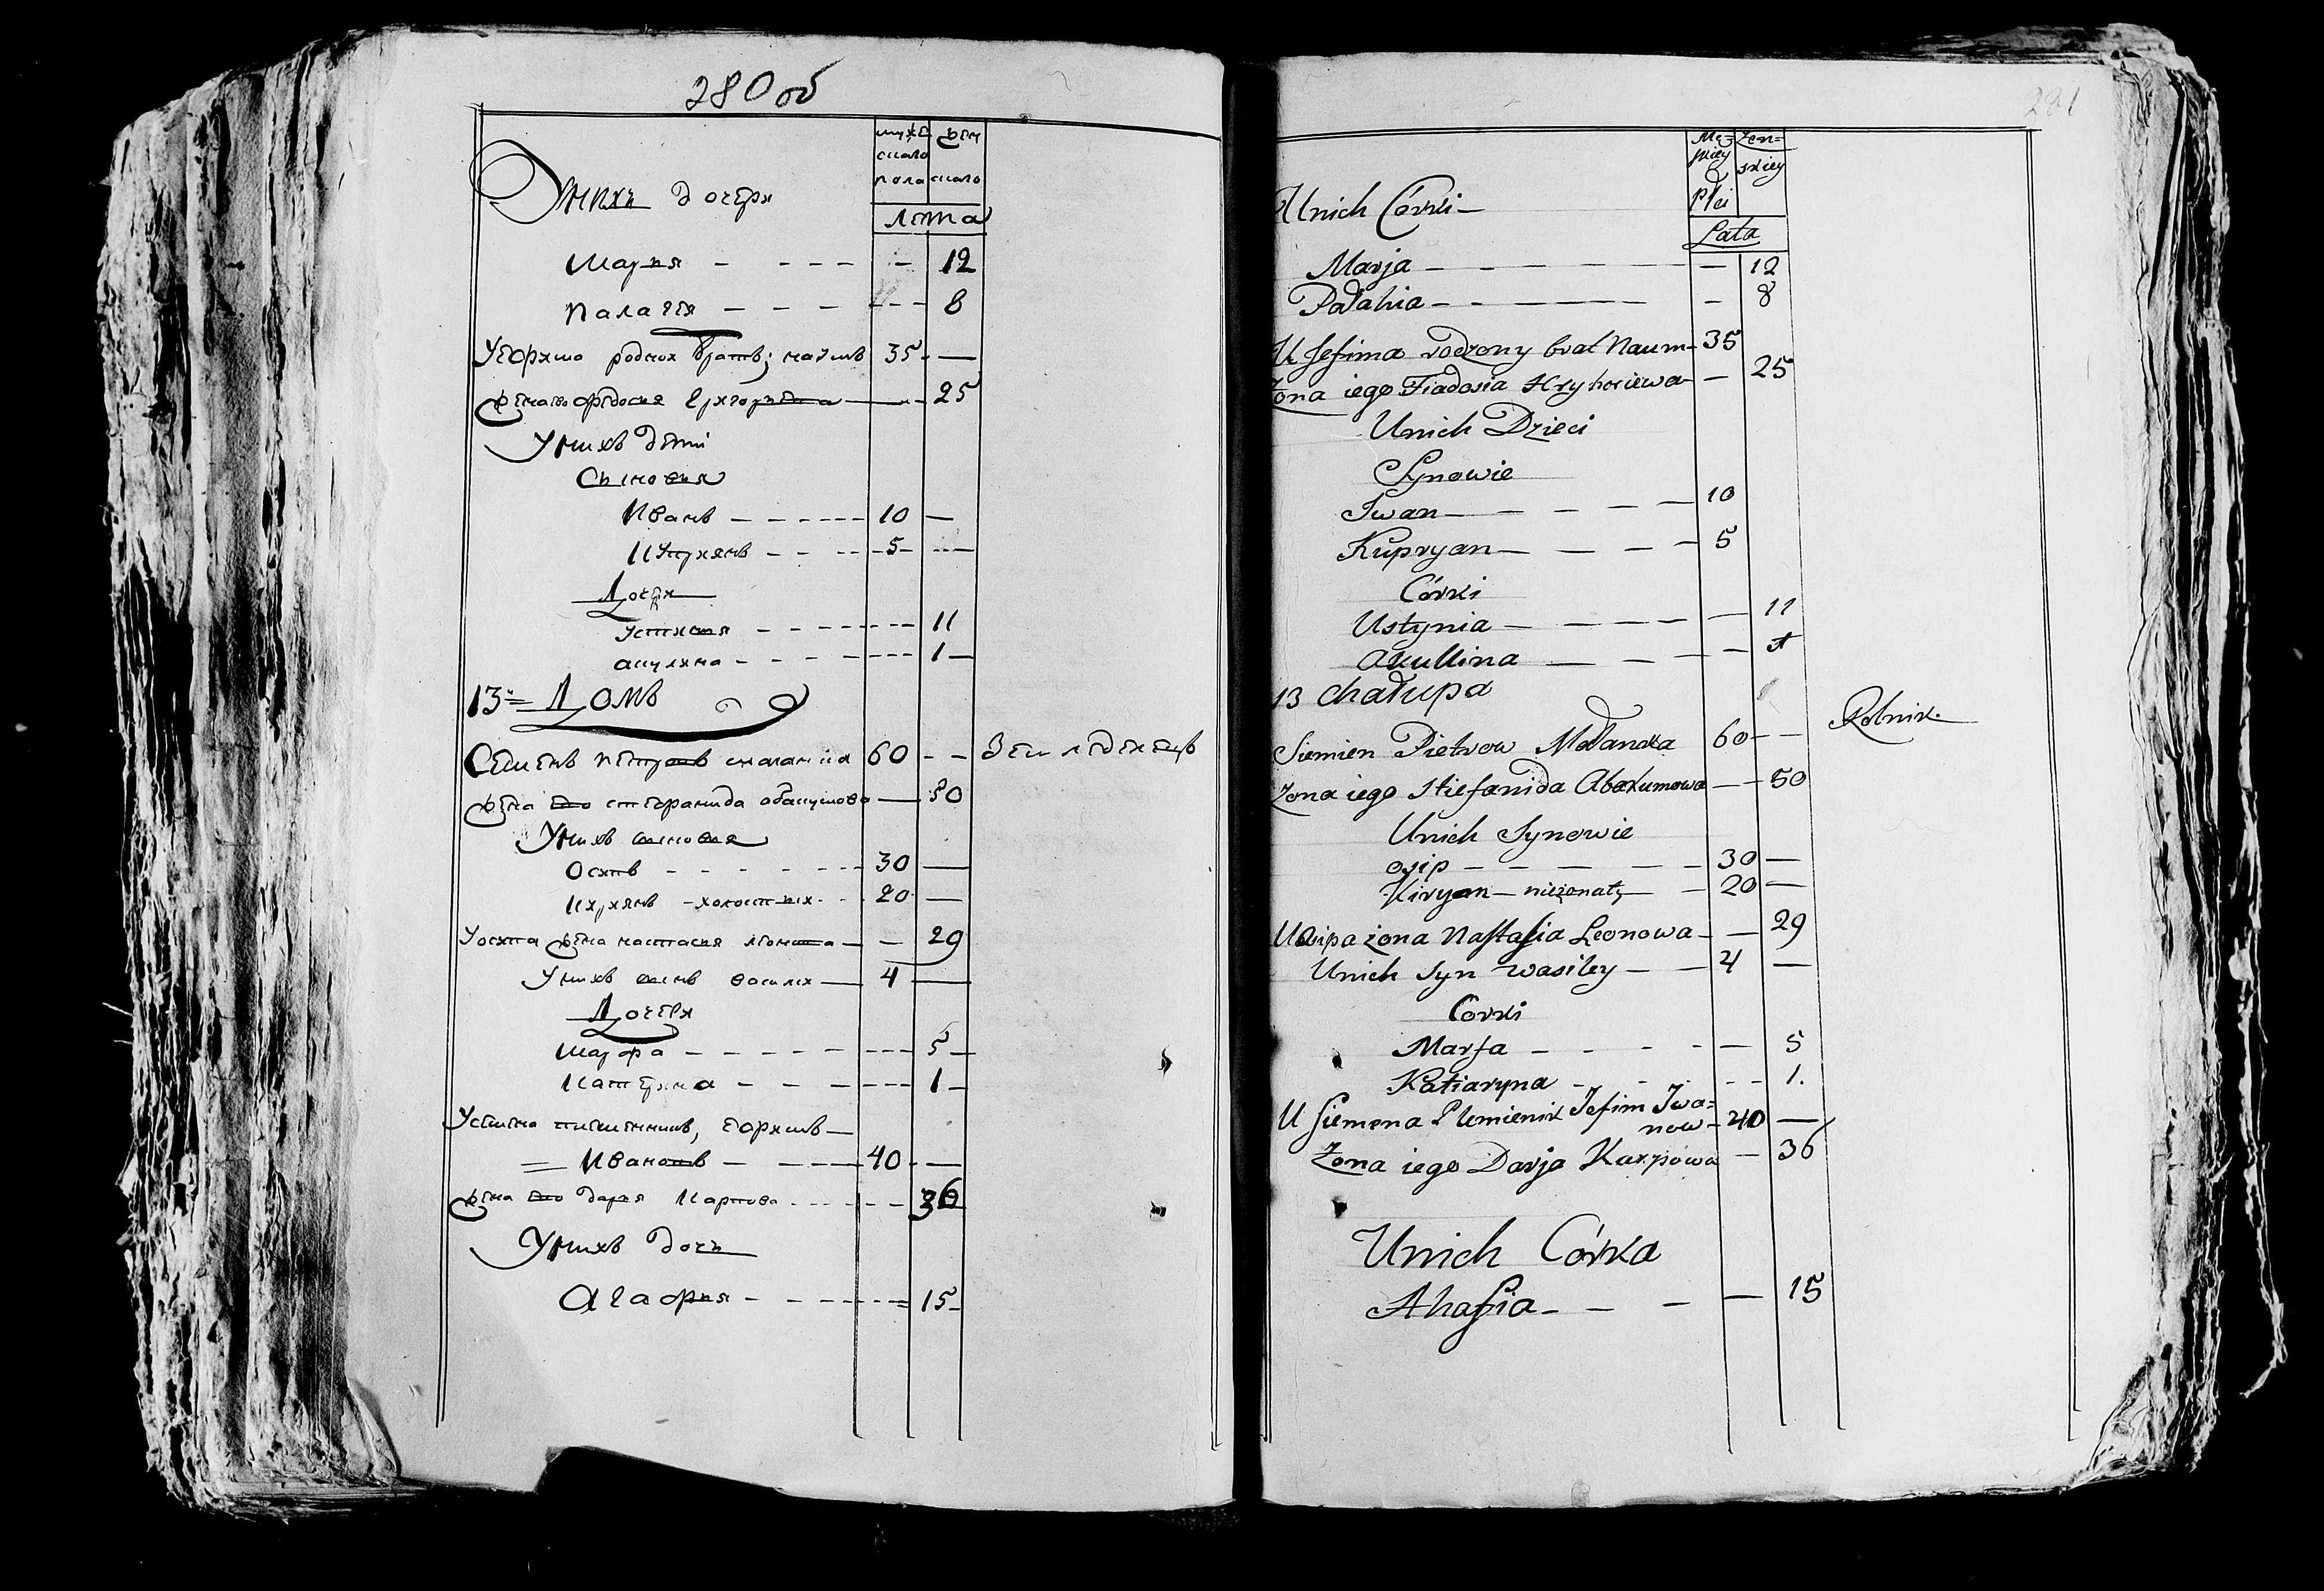 280 об
мужескаго пола женскаго
лета
Унихъ дочери
Мария - - - - - 12
Палагея - - - - - 8
Уефима родной братъ; наумъ 35 -
жена его федосия Григорьева - 25
Унихъ дети
Сыновья
Иванъ - - - - - 10 -
Куприянъ - - - - 5 - -
Дочери
Устиния - - - - - 11
акулина - - - - - 1 -
13= Домъ
Семенъ петровъ маланка 60 - - Земледелецъ
жена его стефанида абакумова - 50
Унихъ сыновья
Осипъ - - - - - 30 -
Кирьянъ - холостый - - 20 -
Уосипа жена настасия леонова - - 29
Унихъ сынъ василей - 4 -
Дочери
Марфа - - - - - 5 -
Катерина - - - - - 1 -
Усемена племянникъ, ефимъ -
= Ивановъ - - - 40 - -
жена его дарья Карпова - - - - 36
Унихъ дочь
Агафия - - - - - = 15 -
281
Męzkiey Płci Zenskiey
Lata
Unich Córki -
Marja - - - - - 12
Pałahia - - - - - 8
U Jefima rodzony brat Naum - 35
Zona iego Fiadosia Hryhoriewa - - 25
Unich Dzieci
Synowie
Iwan - - - - - 10
Kupryan - - - - 5
Córki
Ustynia - - - - - 11
Akullina - - - - 1
13 Chałupa
Siemien Pietrow Małanka 60 - - Rolnik.
Zona iego Stiefanida Abakumowa - - 50
Unich Synowie
Osip - - - - - 30 -
Kiryan - nieżonaty - - 20 -
U Osipa żona Nastasia Leonowa - - 29
Unich Syn Wasiley - - 4 -
Corki
Marfa - - - - - 5
Katiaryna - - - - - 1.
U Siemena Plemienik Jefim Iwa=
now - 40 -
Zona iego Darja Karpowa - 36
Unich Córka
Ahafia - - - - 15